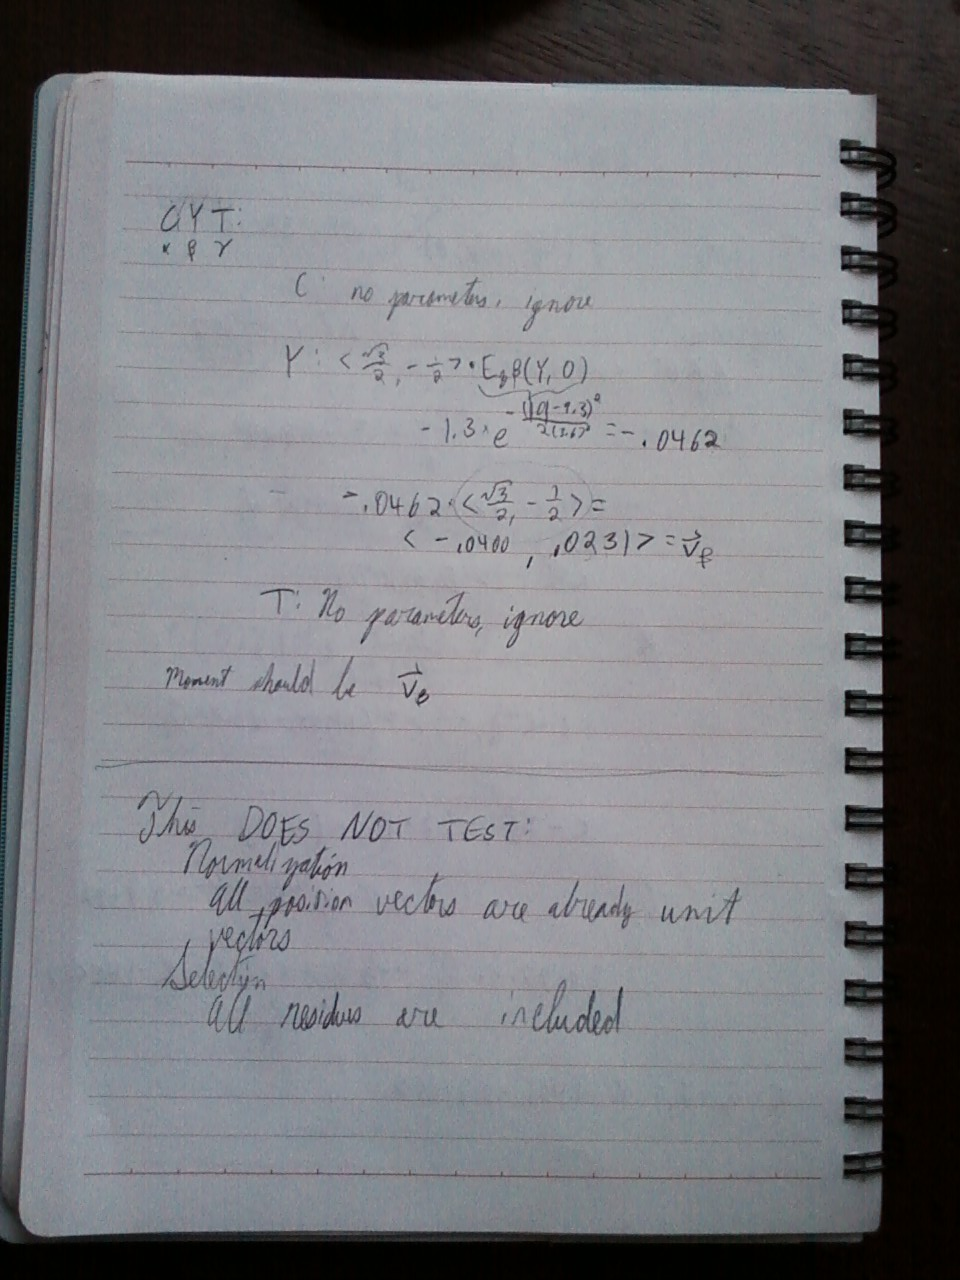 CYT:
α β γ
C: no parameters, ignore
Y: < √3/2, - 1/2 > · E_qβ(Y, 0)
- 1.3 · e = -.0462
-.0462 · < √3/2, - 1/2 > =
< -.0400 , .0231 > = v⃗_β
T: No parameters, ignore
Moment should be v⃗_β
This DOES NOT TEST:
Normalization
All position vectors are already unit
vectors
Selection
All residues are included